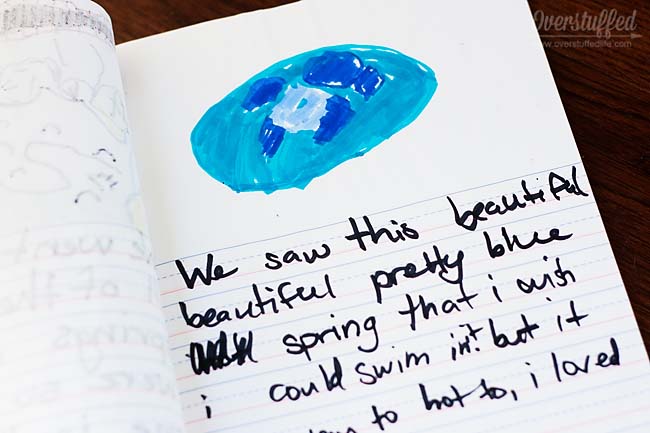 Overstuffed
www.overstuffedlife.com
We saw this beautiful
beautiful pretty blue
spring that i wish
i could swim in but it
to hot to, i loved